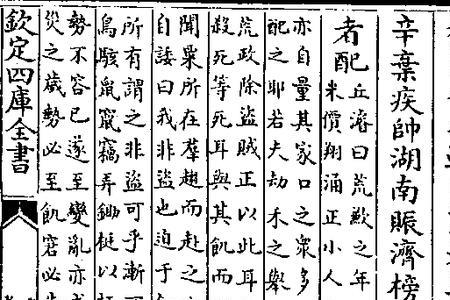 辛棄疾帥湖南賑濟榜
者配
丘濬曰荒歉之年
米價翔涌正小人
亦自量其家口之衆多
配之耶若夫劫禾之舉
荒政除盜賊正以此耳
殺死等死耳與其飢而
聞粟所在羣趨而赴之
自諉曰我非盜也迫于
所有謂之非盜可乎漸
鳥駭鼠竄竊弄鋤梃以
勢不容已遂至變亂亦
災之歲勢必至飢窘必
欽定四庫全書